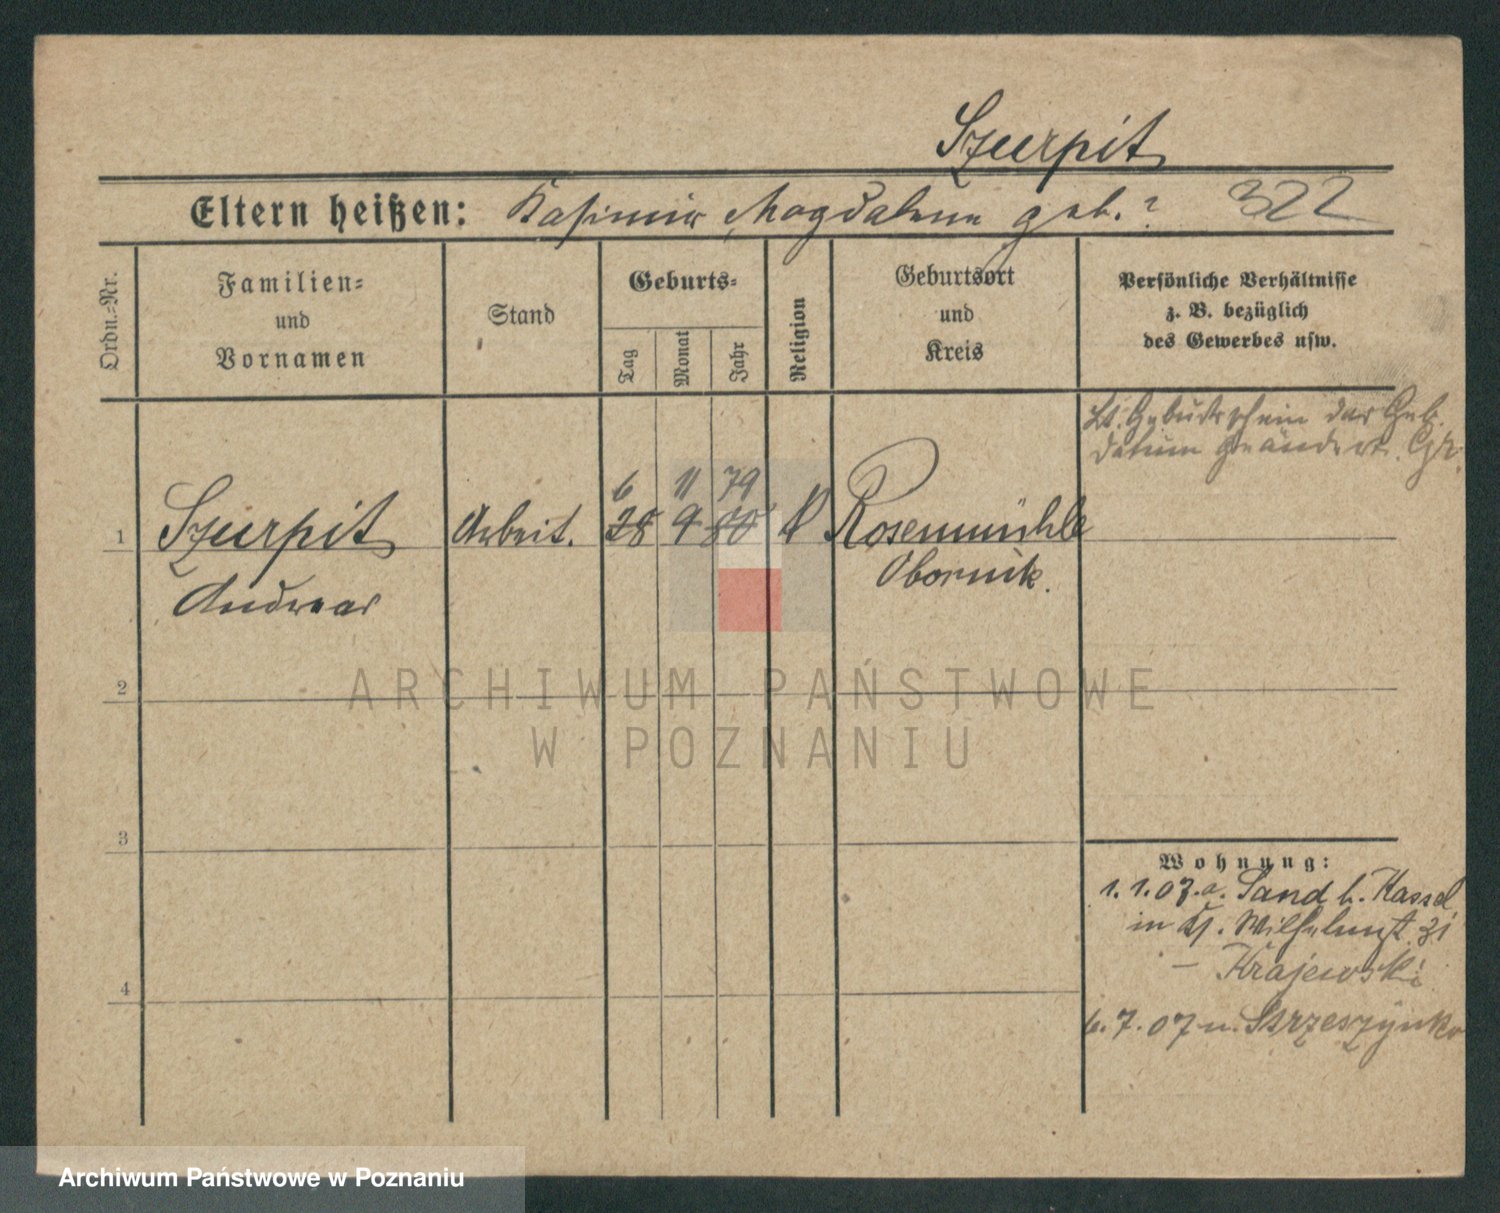 Szurpit
Eltern heißen: Kasimir Magdalena geb.? 322
Ordn.-Nr.
Familien-
und
Vornamen
Stand
Geburts-
Tag
Monat
Jahr
Religion
Geburtsort
und
Kreis
Persönliche Verhältnisse
z. B. bezüglich
des Gewerbes usw.
Lt. Geburtsschein das Geb.
datum geändert. Gr.
6 11 79
1 Szurpit Arbeit. 28 9 80 k Rosenmühle
Andreas Obornik.
2
3
4
Wohnung:
1.1.07. a. Sand b. Kassel
in Wilhelmst. 31
– Krajewski
6.7.07 n. Strzeszynko
ARCHIWUM PAŃSTWOWE
W POZNANIU
Archiwum Państwowe w Poznaniu